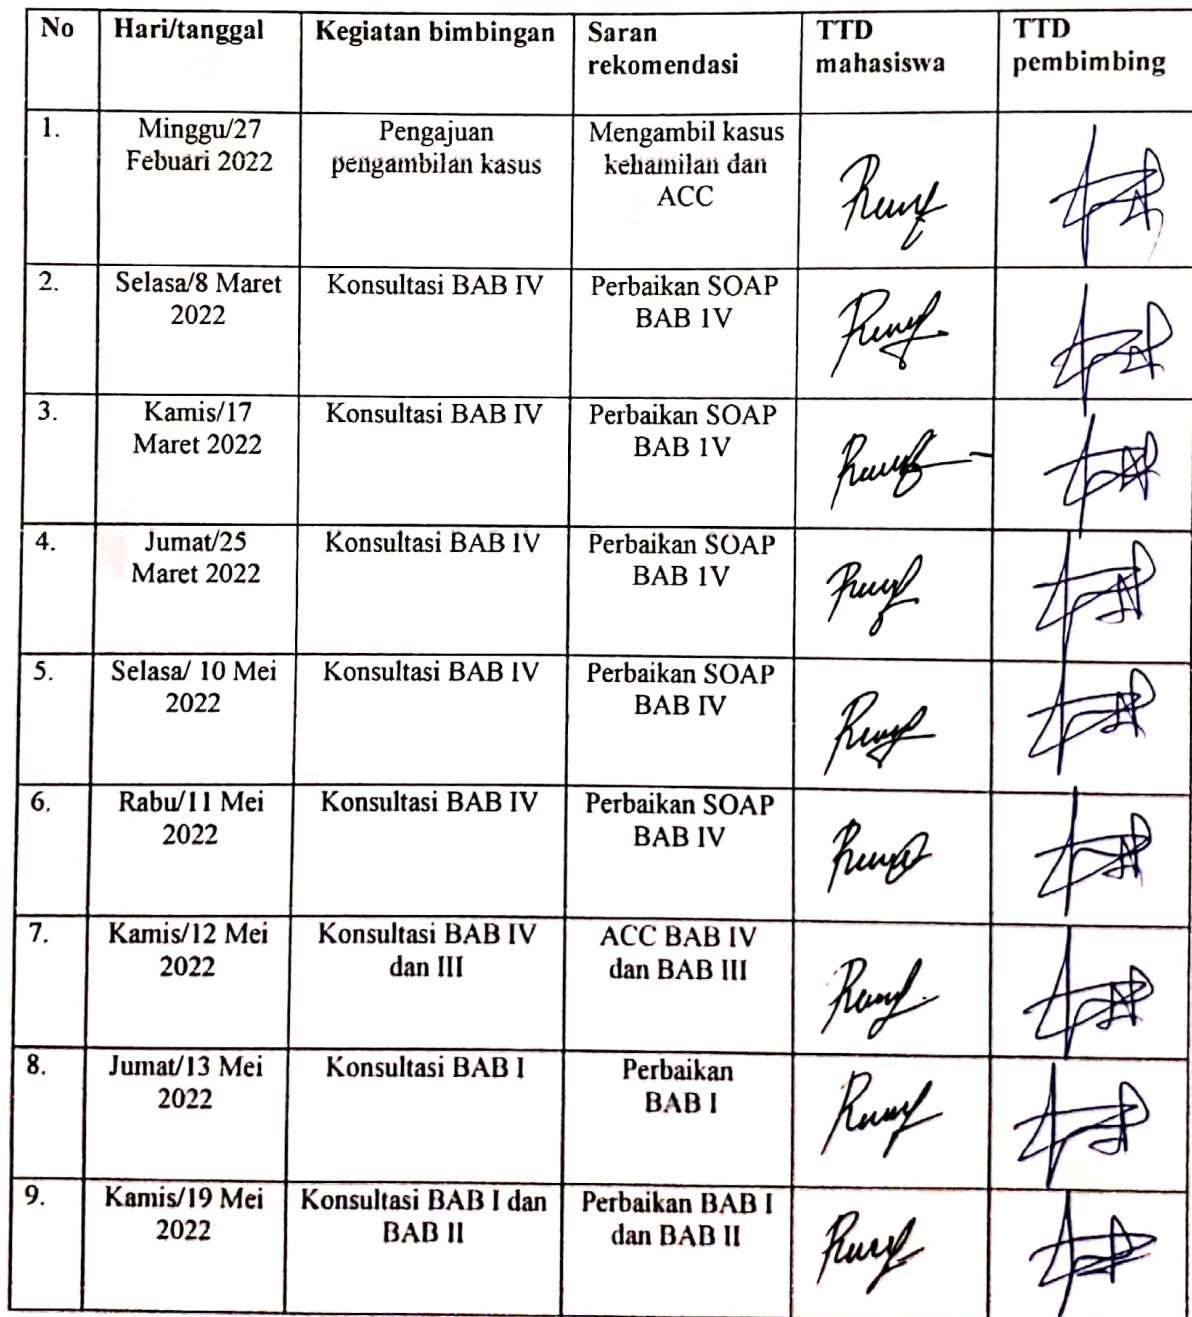 No Hari/tanggal Kegiatan bimbingan Saran rekomendasi TTD mahasiswa TTD pembimbing
1. Minggu/27 Febuari 2022 Pengajuan pengambilan kasus Mengambil kasus kehamilan dan ACC
2. Selasa/8 Maret 2022 Konsultasi BAB IV Perbaikan SOAP BAB 1V
3. Kamis/17 Maret 2022 Konsultasi BAB IV Perbaikan SOAP BAB 1V
4. Jumat/25 Maret 2022 Konsultasi BAB IV Perbaikan SOAP BAB 1V
5. Selasa/ 10 Mei 2022 Konsultasi BAB IV Perbaikan SOAP BAB IV
6. Rabu/11 Mei 2022 Konsultasi BAB IV Perbaikan SOAP BAB IV
7. Kamis/12 Mei 2022 Konsultasi BAB IV dan III ACC BAB IV dan BAB III
8. Jumat/13 Mei 2022 Konsultasi BAB I Perbaikan BAB I
9. Kamis/19 Mei 2022 Konsultasi BAB I dan BAB II Perbaikan BAB I dan BAB II